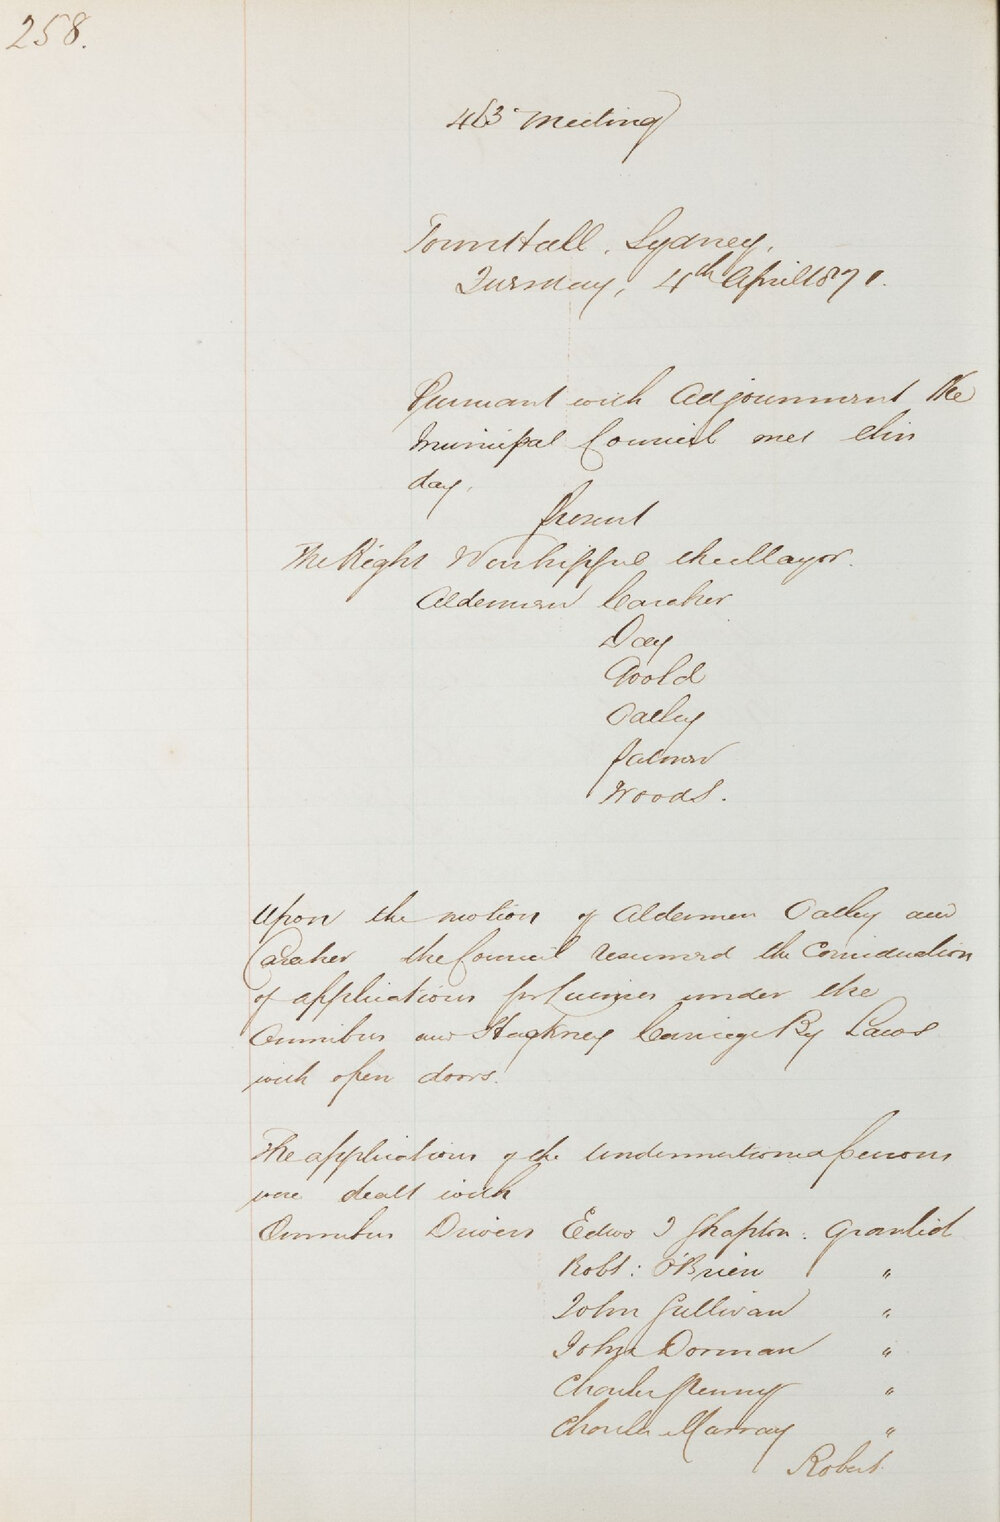 258.
463 Meeting
Town Hall, Sydney,
Tuesday, 4th April 1871.
Pursuant with Adjournment the
Municipal Council met this
day.
Present
The Right Worshipful the Mayor.
Aldermen Caraher
Day
Goold
Oatley
Palmer
Woods.
Upon the motion of Aldermen Oatley and
Caraher the Council resumed the Consideration
of applications for Licenses under the
Omnibus and Hackney Carriage By Laws
with open doors.
The applications of the undermentioned persons
were dealt with
Omnibus Drivers Edwd J Shapton. Granted
Robt: O'Brien "
John Sullivan "
John Dorman "
Charles Penny "
Charles Murray "
Robert